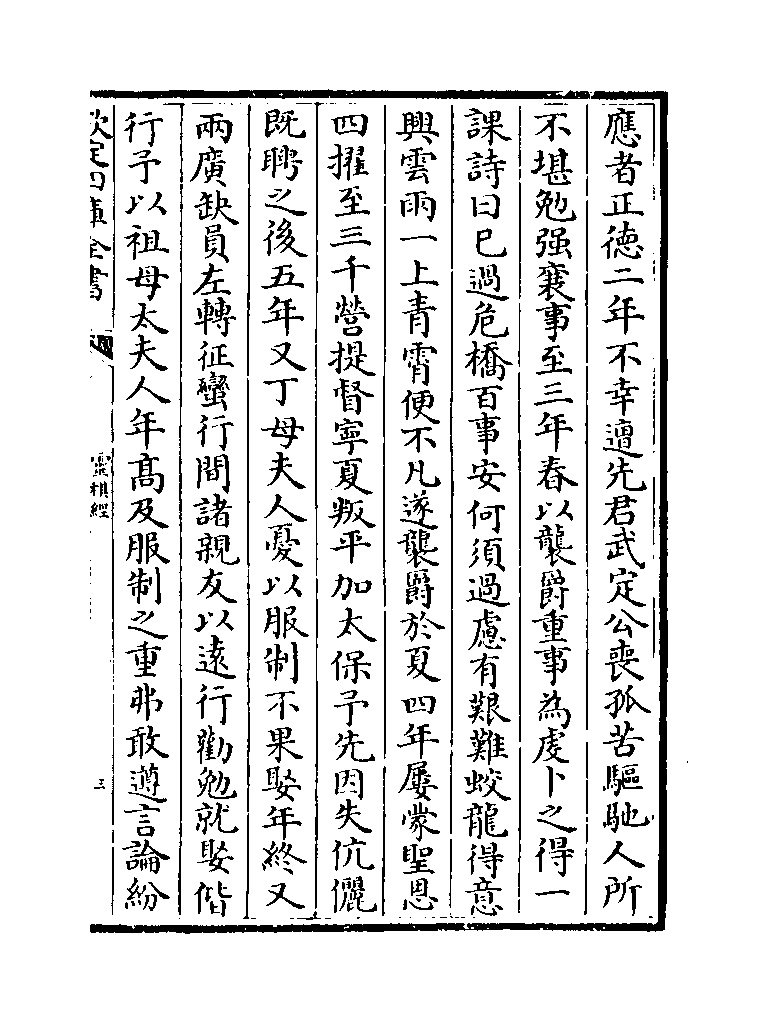 應者正徳二年不幸遭先君武定公喪孤苦驅馳人所
不堪勉强襄事至三年春以襲爵重事為虔卜之得一
課詩曰已過危橋百事安何須過慮有艱難蛟龍得意
興雲雨一上青霄便不凡遂襲爵於夏四年屢蒙聖恩
四擢至三千營提督寧夏叛平加太保予先因失伉儷
既聘之後五年又丁母夫人憂以服制不果娶年終又
兩廣缺員左轉征蠻行間諸親友以逺行勸勉就娶偕
行予以祖母太夫人年髙及服制之重弗敢遵言論紛
欽定四庫全書
靈棋經
三